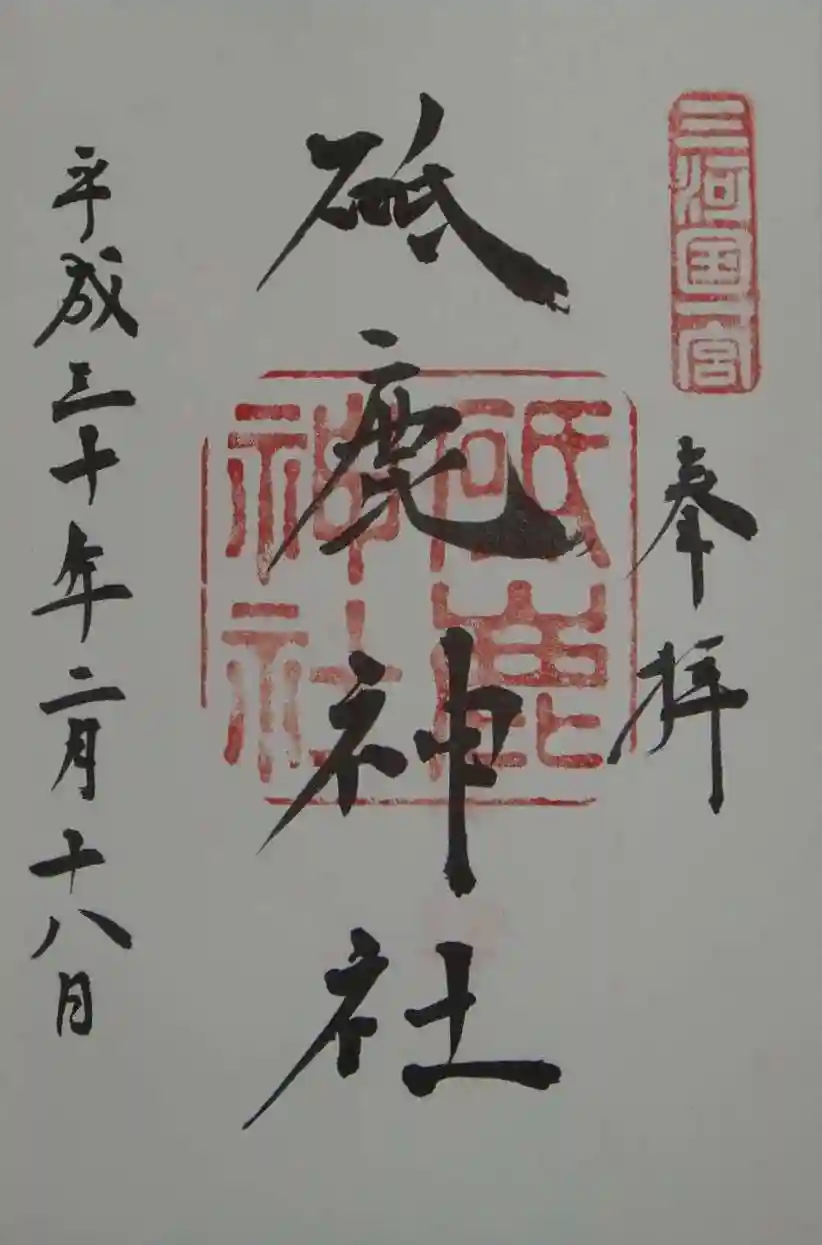 三河国一宮
奉拝
砥鹿神社
砥鹿
神社
平成三十年二月十八日